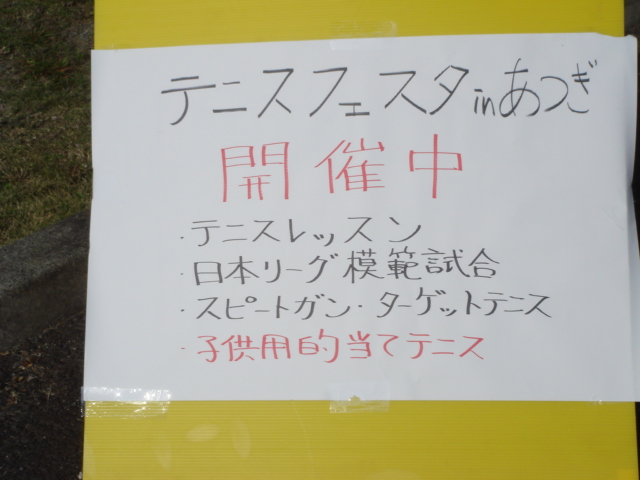 テニスフェスタinあつぎ
開催中
・テニスレッスン
・日本リーグ模範試合
・スピートガン・ターゲットテニス
・子供用的当てテニス